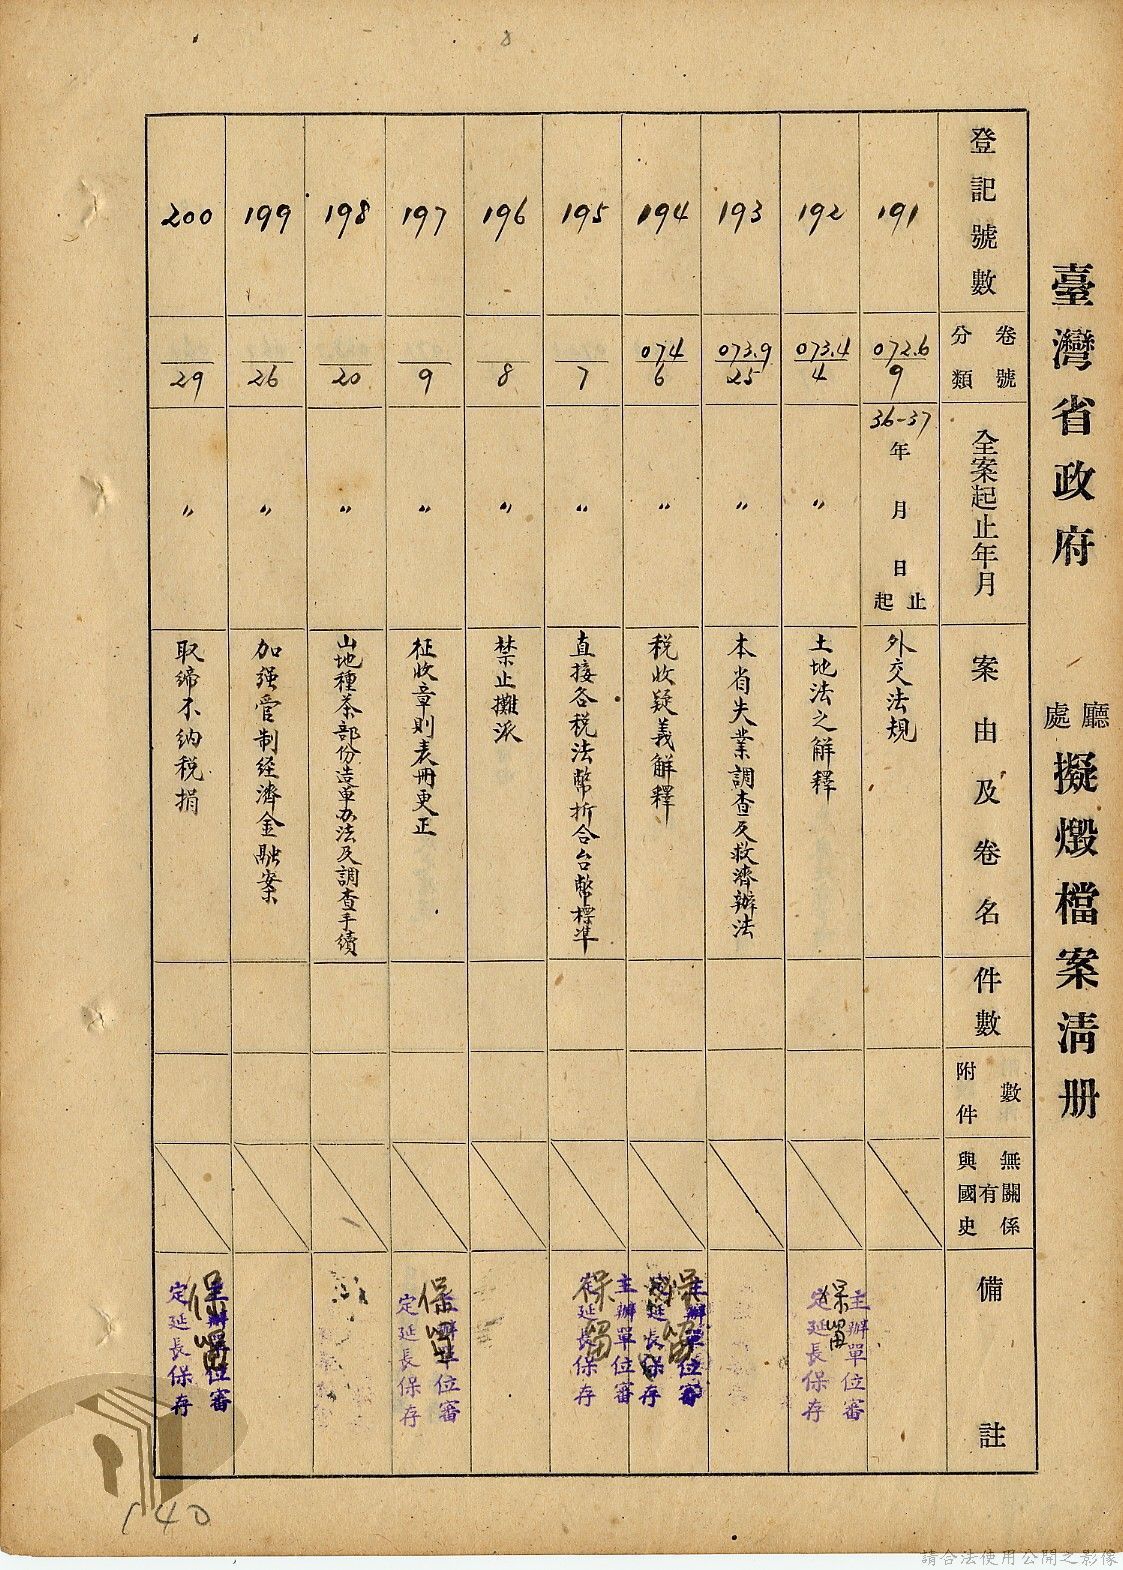 臺灣省政府 廳處 擬燬檔案清册
登記號數
分類 卷號
全案起止年月
案由及卷名
件數
附件 數
與國史 有無關係
備註
191
072.6
9
36-37
年 月 日
起 止
外交法規
192
073.4
4
〃
土地法之解釋
保留
主辦單位審
定延長保存
193
073.9
25
〃
本省失業調查及救濟辦法
194
074
6
〃
税收疑義解釋
保留
主辦單位審
定延長保存
195
7
〃
直接各税法幣折合台幣標準
保留
主辦單位審
定延長保存
196
8
〃
禁止攤派
197
9
〃
征收章則表冊更正
保留
主辦單位審
定延長保存
198
20
〃
山地種茶部份造單办法及調查手續
199
26
〃
加强管制经濟金融案
200
29
〃
取締不纳税捐
保留
主辦單位審
定延長保存
140
8
請合法使用公開之影像